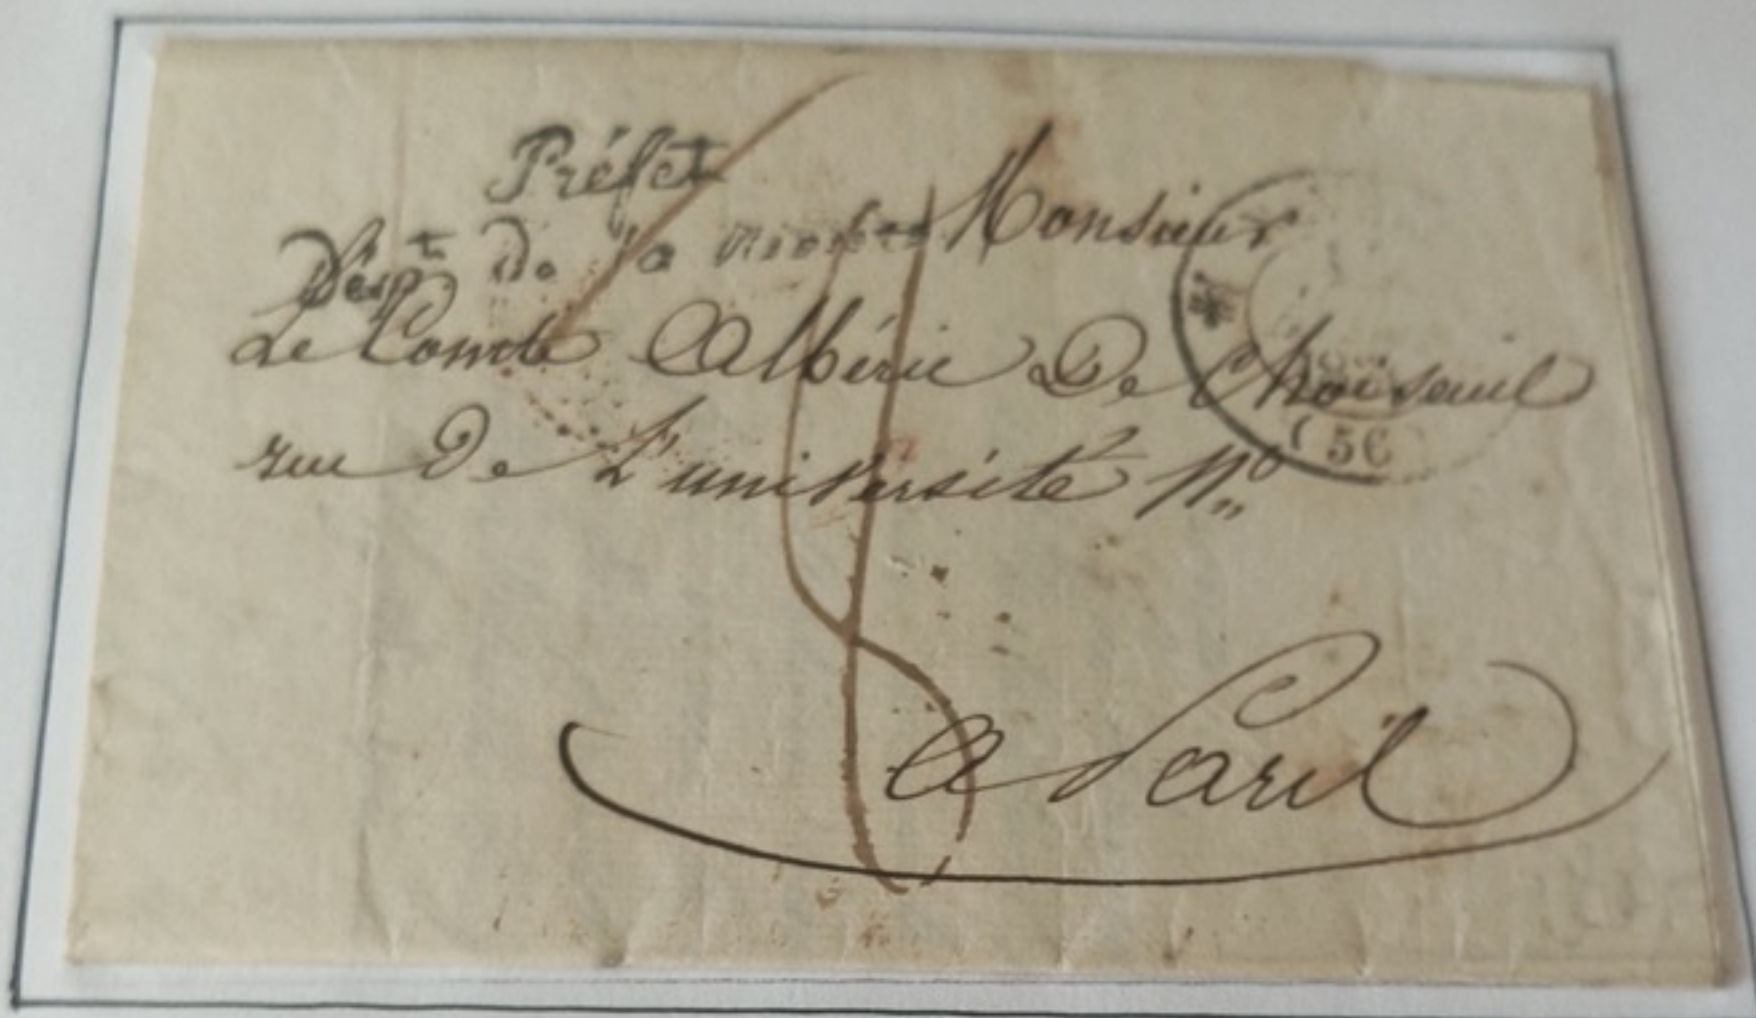 Préfet
Dép.t De la Nièvre
Monsieur
Le Comte Albéric De Choiseuil
rue De L'université N.o
a Paris
(56)